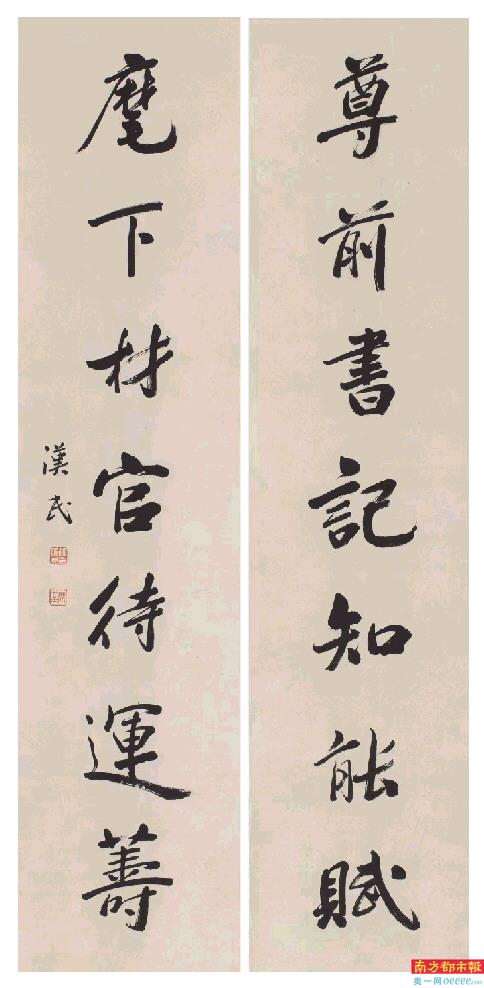 尊前書記知能賦
麾下材官待運籌
漢民
南方都市報
奥一网oeeee.com